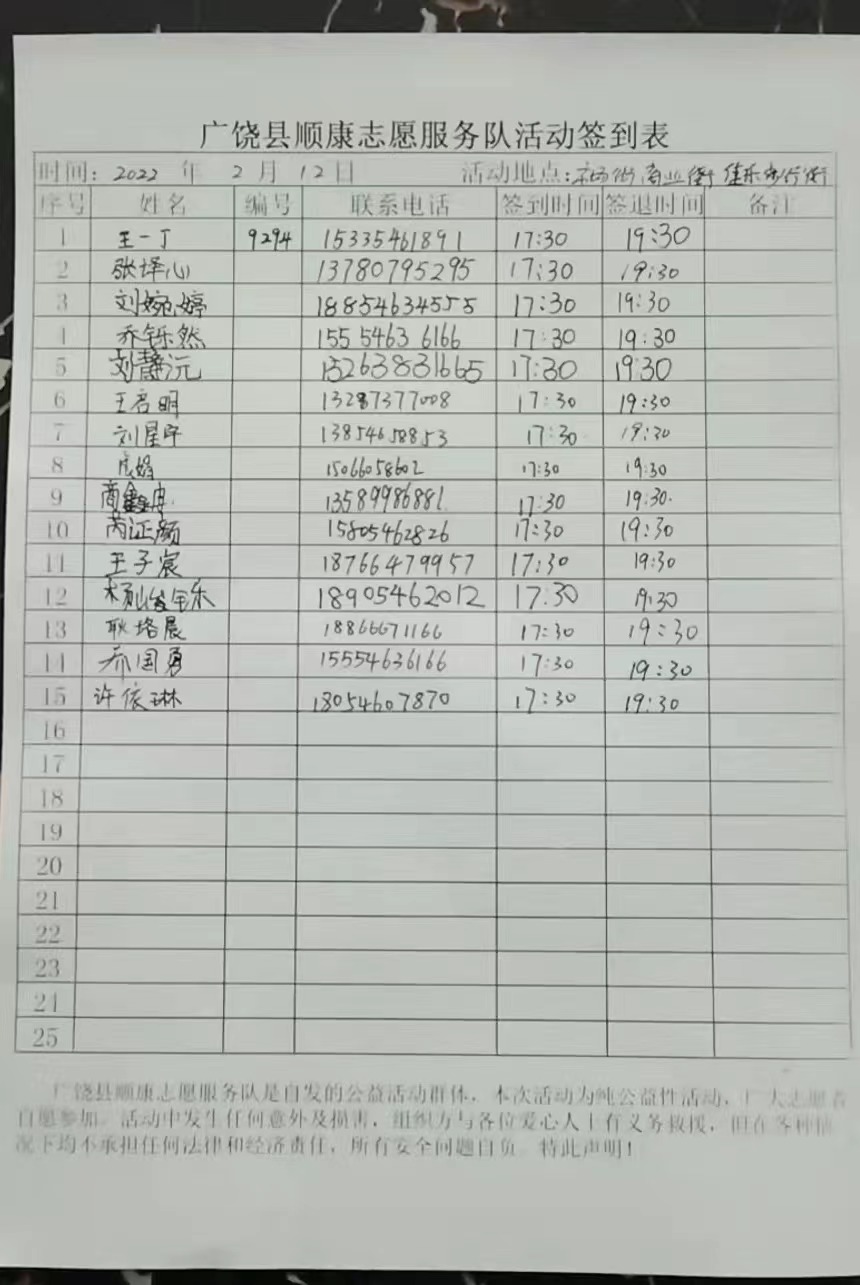 广饶县顺康志愿服务队活动签到表
时间: 2022 年 2 月 12 日 活动地点: 商业街 佳乐步行街
序号 姓名 编号 联系电话 签到时间 签退时间 备注
1 王一丁 9294 15335461891 17:30 19:30
2 张译心 13780795295 17:30 19:30
3 刘婉婷 18854634555 17:30 19:30
4 乔铄然 155 5463 6166 17:30 19:30
5 刘静沅 13263831665 17:30 19:30
6 王启明 13287377008 17:30 19:30
7 刘星宇 13854658853 17:30 19:30
8 15066058602 17:30 19:30
9 商鑫冉 13589986881 17:30 19:30.
10 芮证颜 15805462826 17:30 19:30
11 王子宸 18766479957 17:30 19:30
12 18905462012 17:30 19:30
13 耿培晨 18866671166 17:30 19:30
14 乔国勇 15554636166 17:30 19:30
15 许依琳 18054607870 17:30 19:30
16
17
18
19
20
21
22
23
24
25
广饶县顺康志愿服务队是自发的公益活动群体,本次活动为纯公益性活动,广大志愿者
自愿参加。活动中发生任何意外及损害,组织方与各位爱心人士有义务救援,但在各种情
况下均不承担任何法律和经济责任,所有安全问题自负。特此声明!